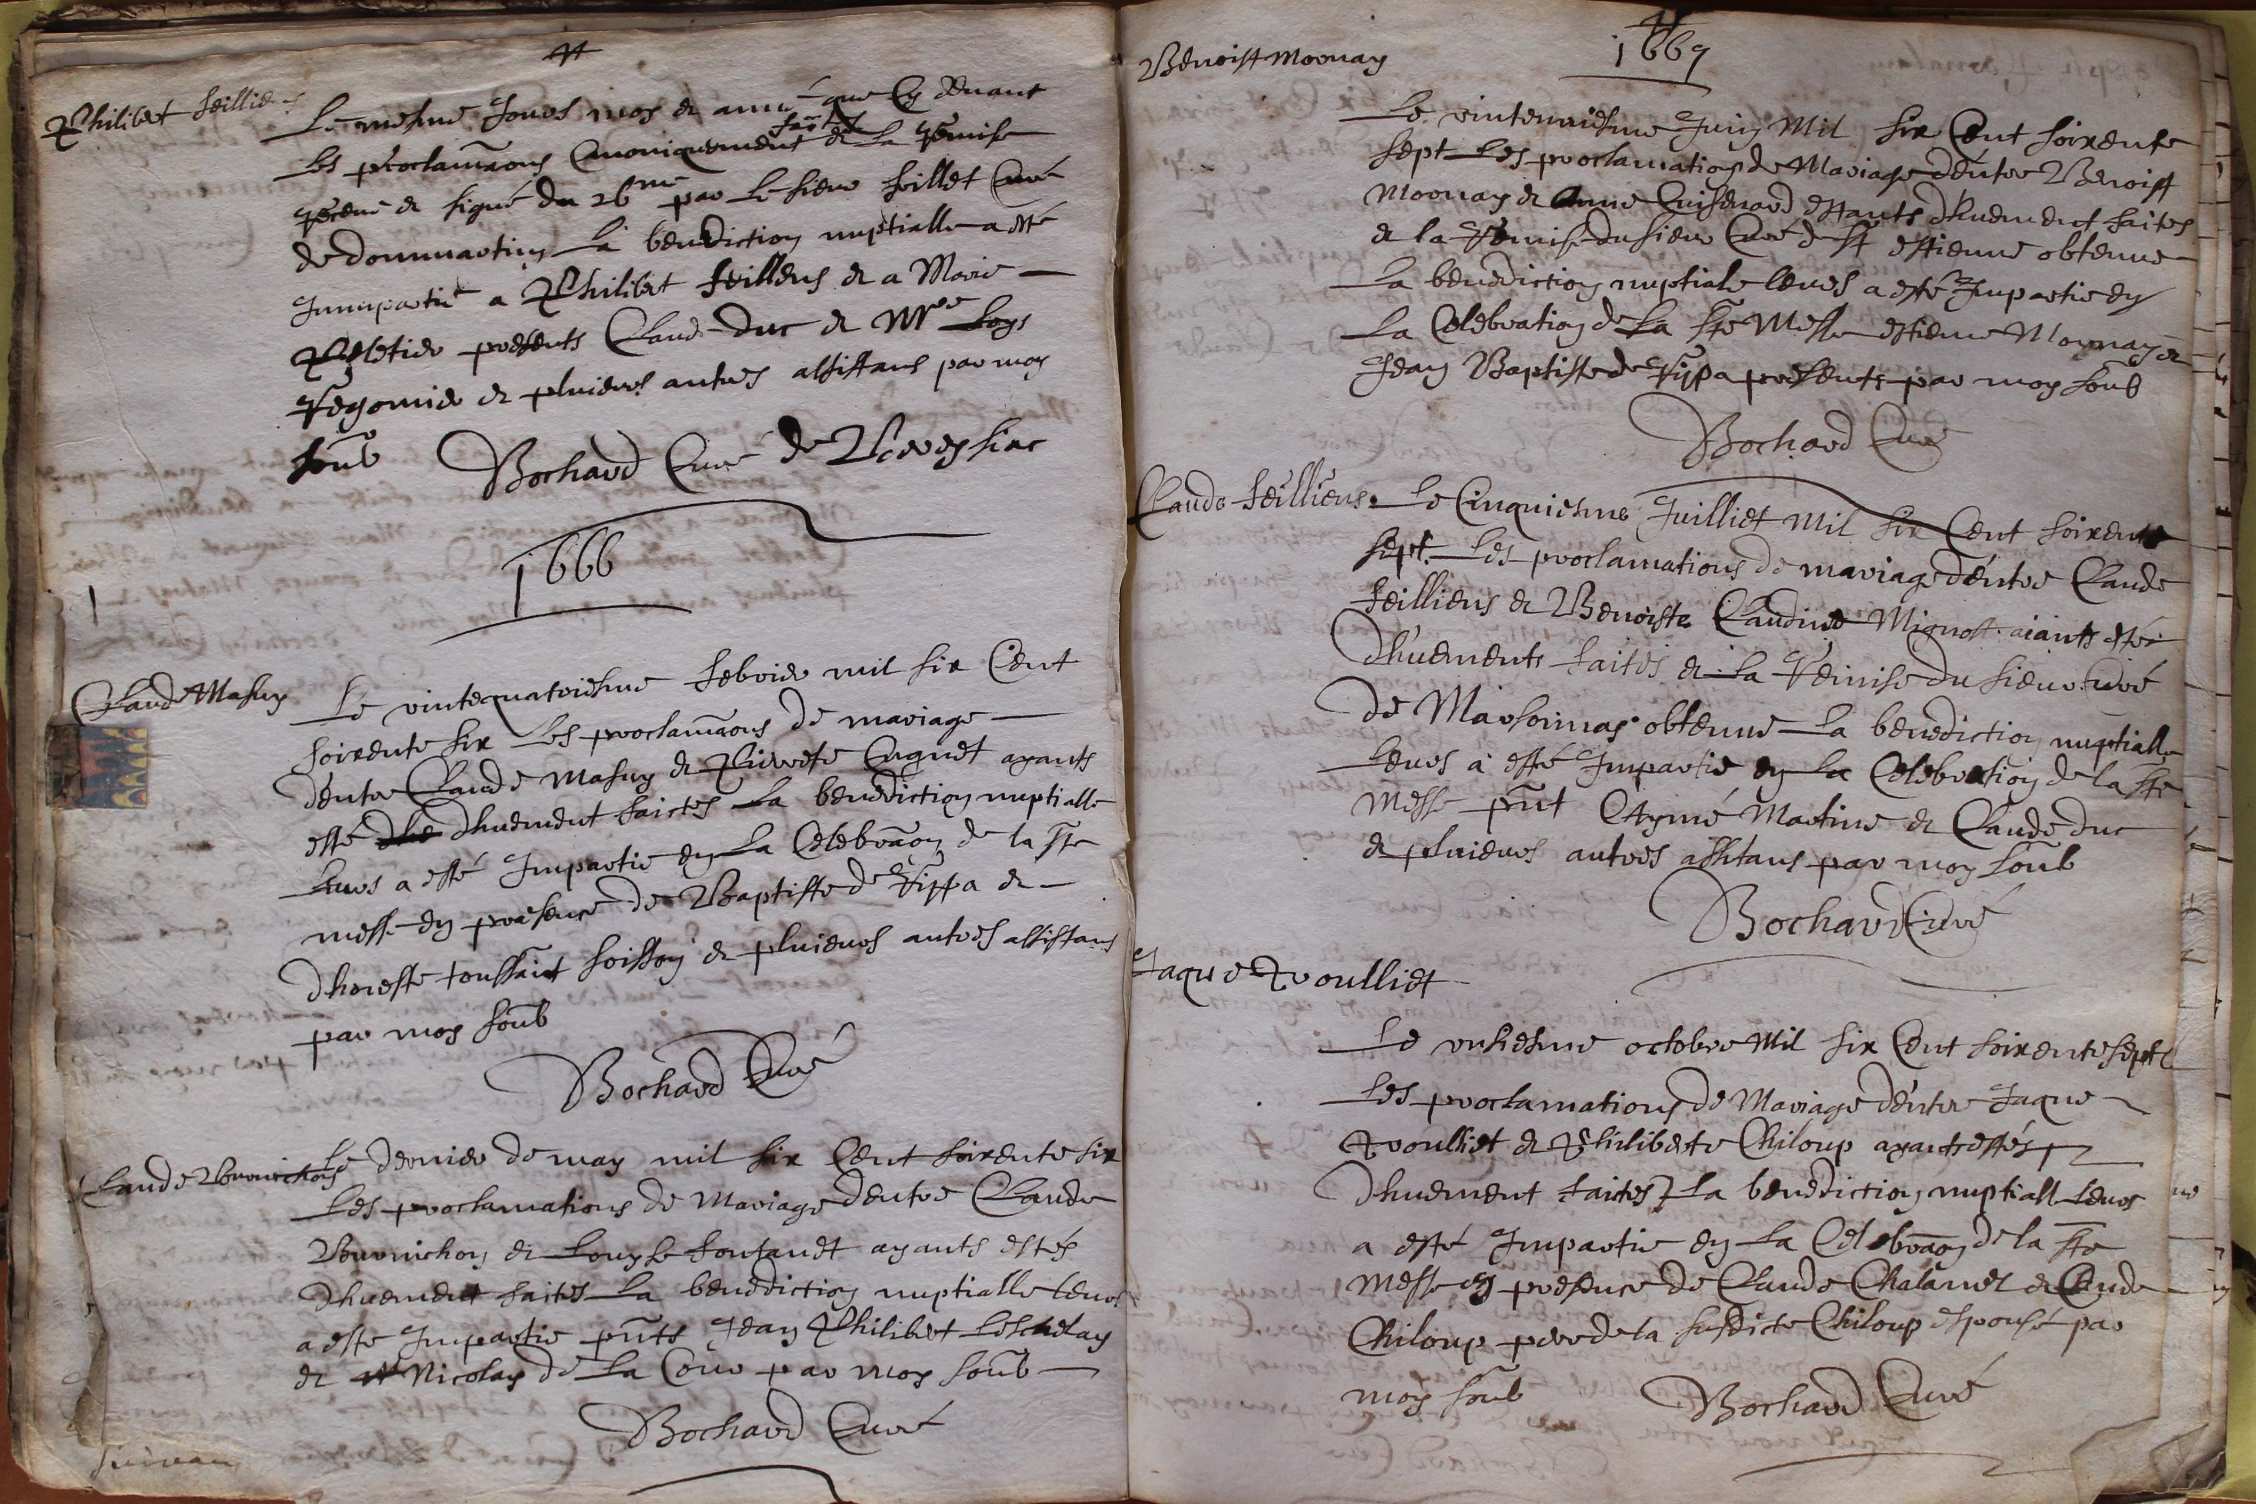 Philibert feilliens
Le mesme Jours moy et année que Cy devant
les proclamãons Canoniquement faictes et La remise
receue et signé du 26me par Le sieur feillet Curé
de dommartin La benediction nuptialle a esté
Jmmpartie a Philibert feilliens et a Marie
Peletier presents Claud duc et Mre Loys
Vegonier et plusieurs autres assistans par moy
soub Bochard Curé de Vereysiac
1666
Claude Masuy
Le vintequatriesme febvrier mil six Cent
soixente six Les proclamãons de mariage
dentre Claude Masuy et Pierrete Cuguet ayants
esté dhuement faictes La benediction nuptialle
leurs a esté Jmpartie en La Celebrãon de la ste
messe en presence de Baptiste de Rippa et
dhoneste toussaint soisson et plusieurs autres assistans
par moy soub
Bochard Curé
Claude Bourrichon
Le dernier de may mil six Cent soixente six
Les proclamations de Mariage dentre Claude
Bourrichon et Louyse fontanet ayants estés
dhuement faites La benediction nuptialle leurs
a este Jmpartie pñts Jean Philibert Leschelay
et Nicolas de La Cour par moy soub
Bochard Curé
1667
Benoist Moornay
Le vinteneuviesme Juin Mil six Cent soixente
sept Les proclamations de Mariage d'entre Benoist
Moornay et Anne Cuisenard estants dhuement faites
et la Remise du sieur Curé de st estienne obtenue
La benediction nuptiale leurs a esté Jmpartie en
La Celebration de La ste Messe estienne Mornay et
Jean Baptiste de Rippa presents par moy soub
Bochard Curé
Claude feilliens
Le Cinquiesme Juilliet Mil six Cent soixente
sept Les proclamations de mariage d'entre Claude
feilliens et Benoiste Claudine Mignot aiants estés
dhuements faites et La Remise du sieur Curé
de Marsonnas obtenue La benediction nuptialle
Leurs a esté Jmpartie en La Celebration de la ste
Messe pñt Aymé Martine et Claude duc
et plusieurs autres assistans par moy soub
Bochard Curé
Jaque Rvoulliet
Le unsiesme octobre Mil six Cent soixente sept
Les proclamations de Mariage d'entre Jaque
Rvoulliet et Philiberte Chiloup ayants estés
dhuement faites La benediction nuptiall Leurs
a esté Jmpartie en La Celebrãon de la ste
Messe en presence de Claude Chalamel et Claude
Chiloup pere de la susdicte Chiloup espouse par
moy soub Bochard Curé